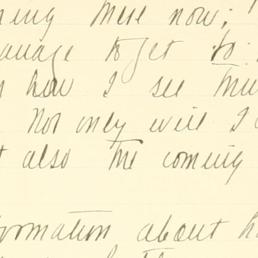 these now;
manage to get to
how I see
Not only will I
also the coming
formation about